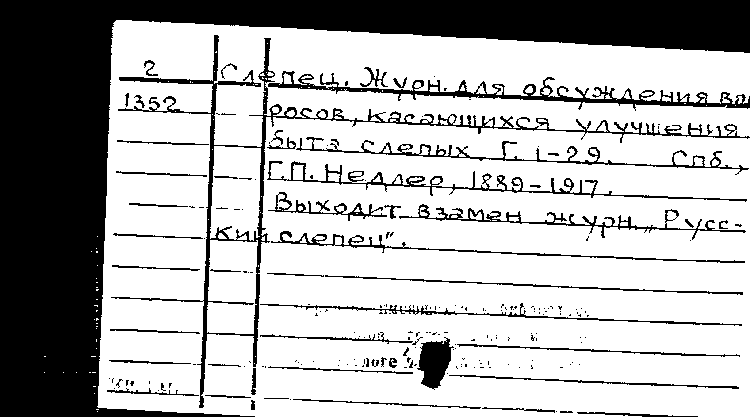 2 Слепец. Журн. для обсуждения воп
1352 росов, касающихся улучшения
быта слепых. Г. 1-29. Спб.,
Г.П. Недлер, 1889-1917.
Выходит взамен журн. „Русс-
кий слепец".